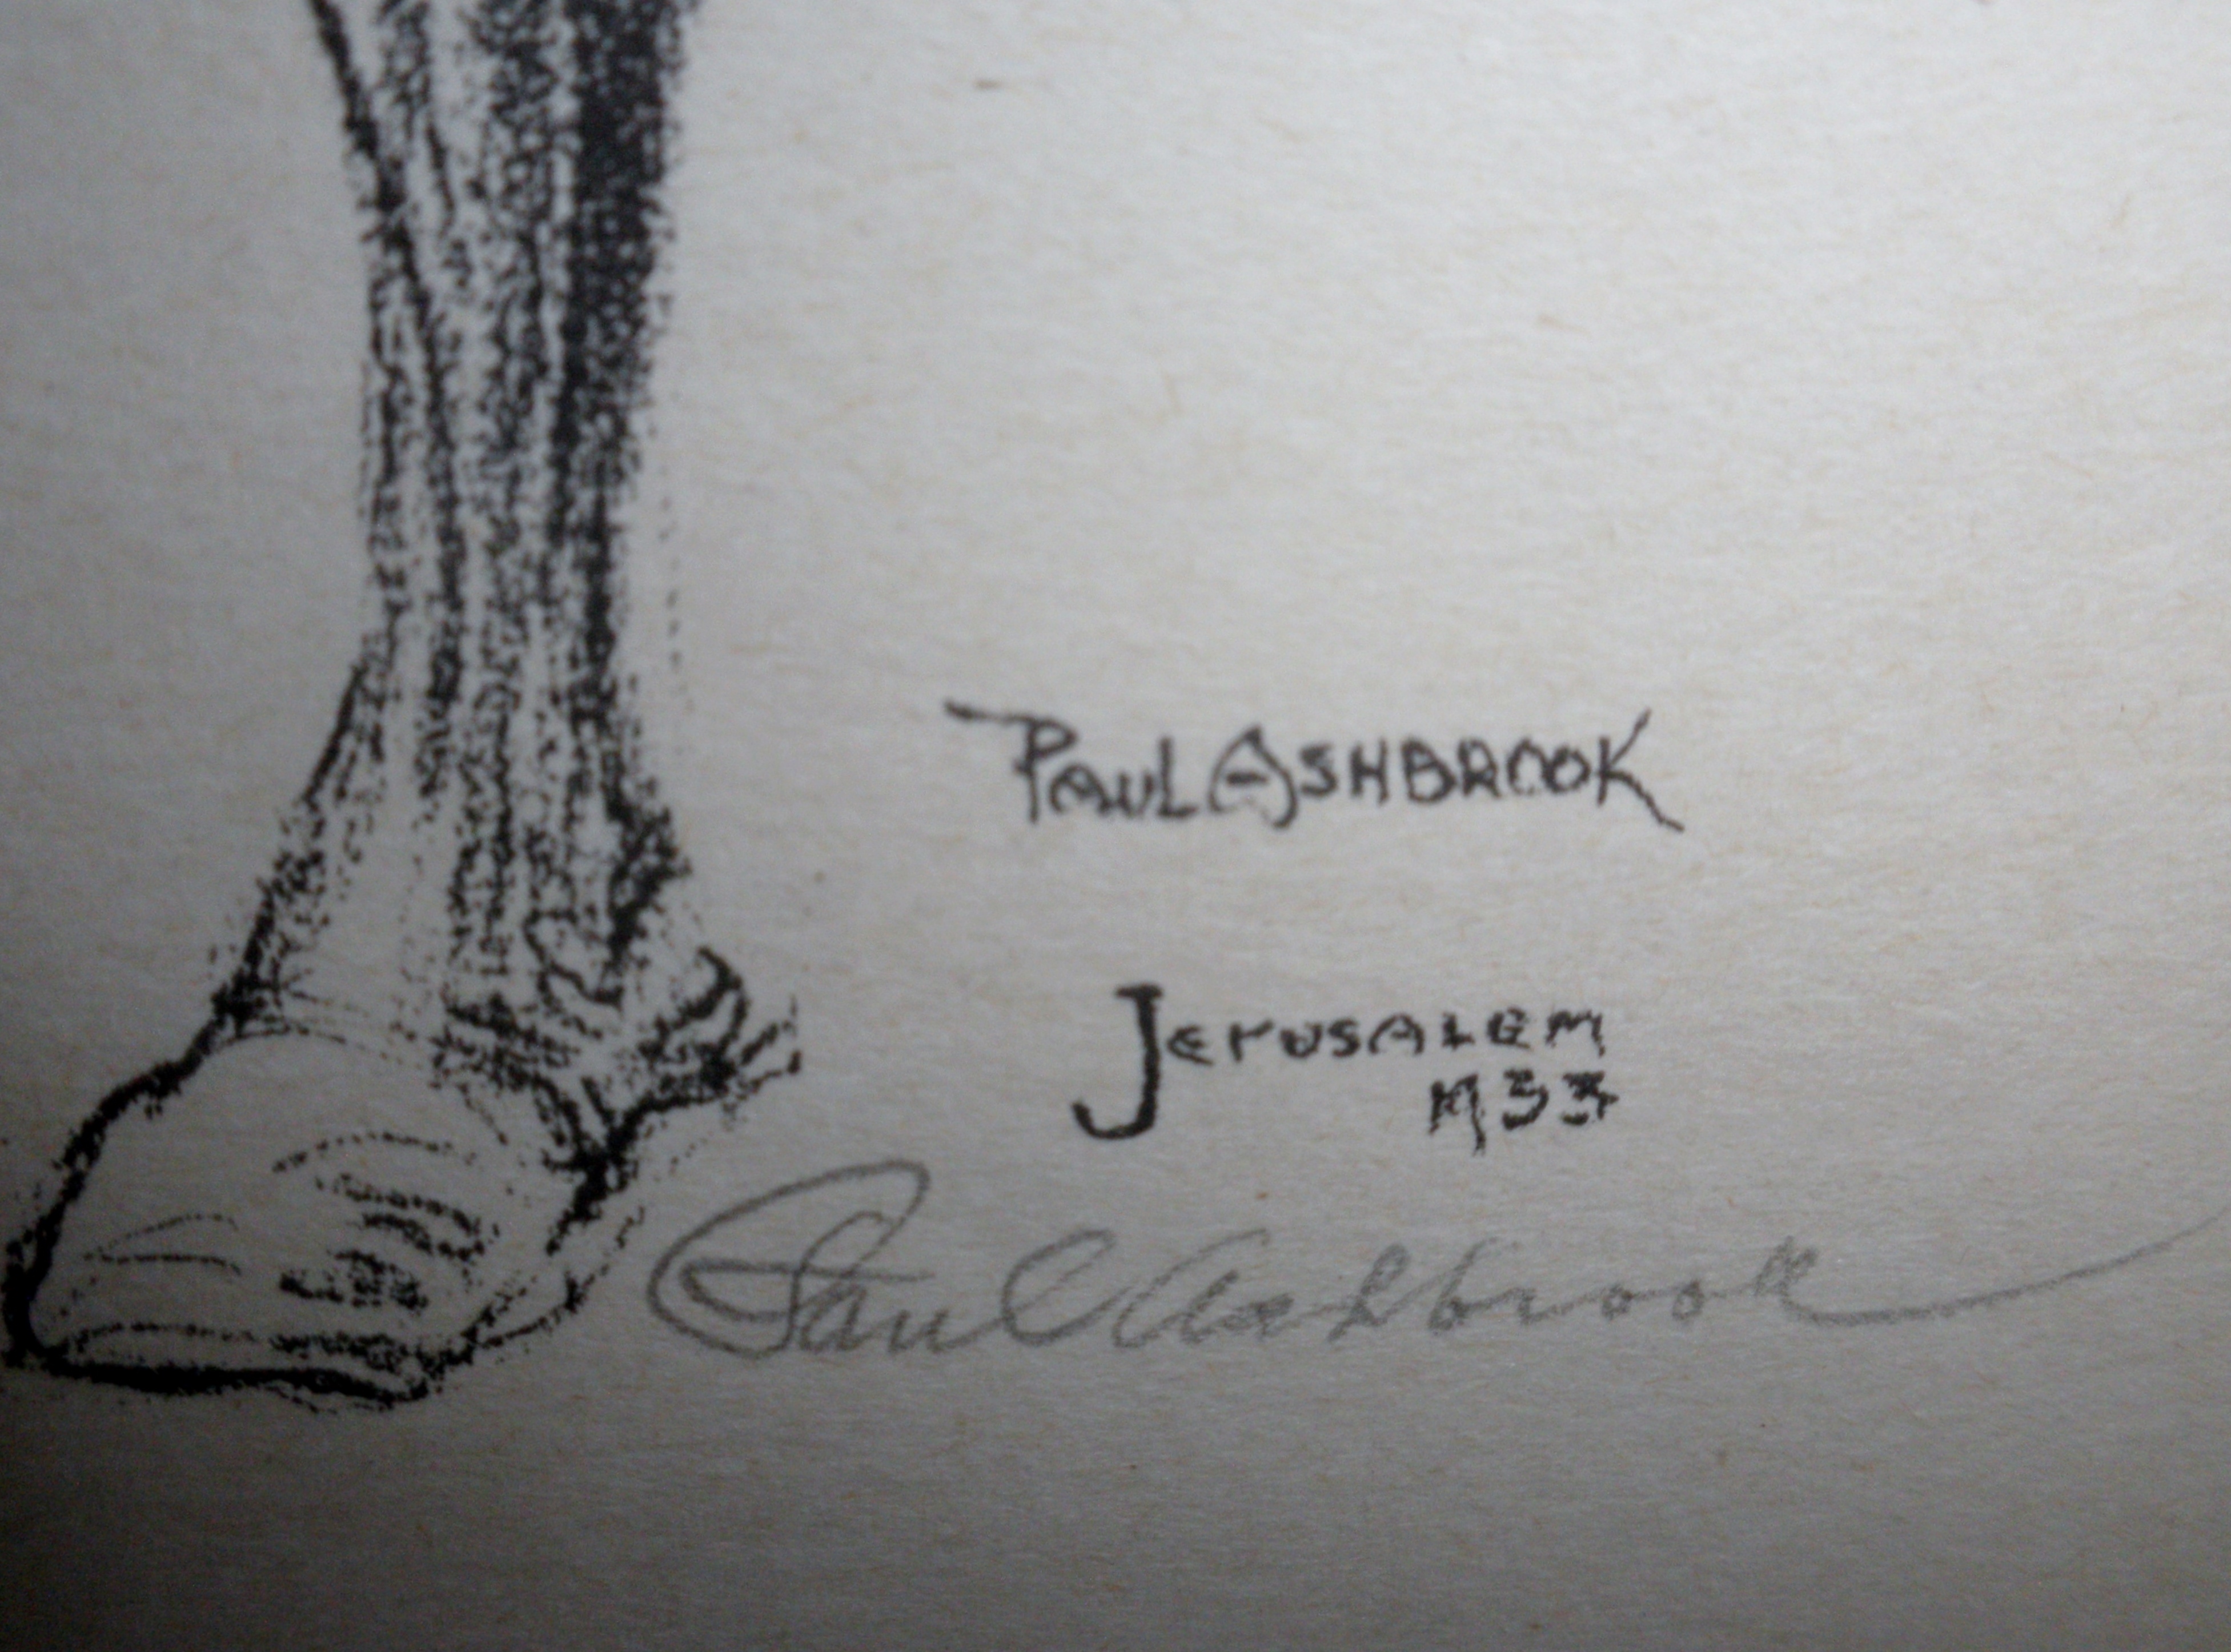 PAUL ASHBROOK
JERUSALEM
1933
Paul Ashbrook